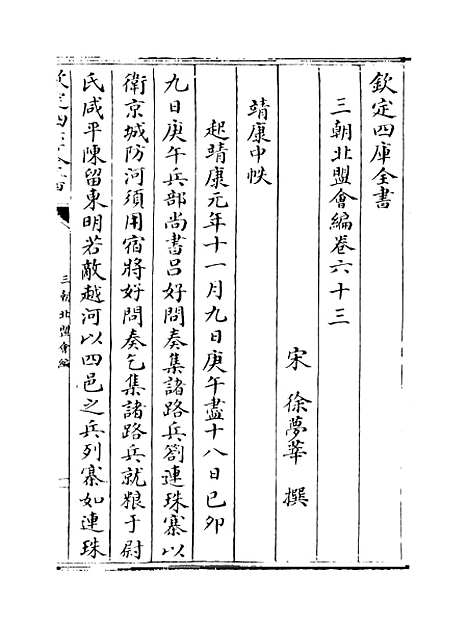 欽定四庫全書
三朝北盟會編卷六十三
宋 徐夢莘 撰
靖康中帙
起靖康元年十一月九日庚午盡十八日己卯
九日庚午兵部尚書呂好問奏集諸路兵劄連珠寨以
衛京城防河須用宿將好問奏乞集諸路兵就粮于尉
氏咸平陳留東明若敵越河以四邑之兵列寨如連珠
三朝北盟會編